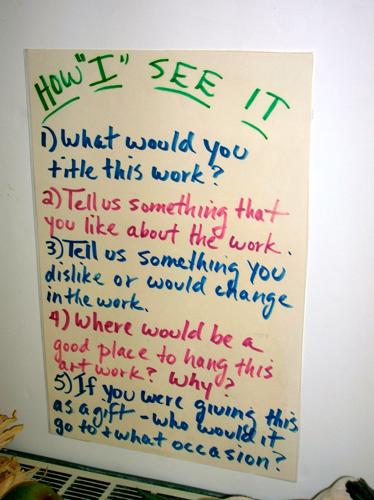 HOW "I" SEE IT
1) What would you
title this work?
2) Tell us something that
you like about the work.
3) Tell us something you
dislike or would change
in the work.
4) Where would be a
good place to hang this
art work? Why?
5) If you were giving this
as a gift - who would it
go to + what occasion?